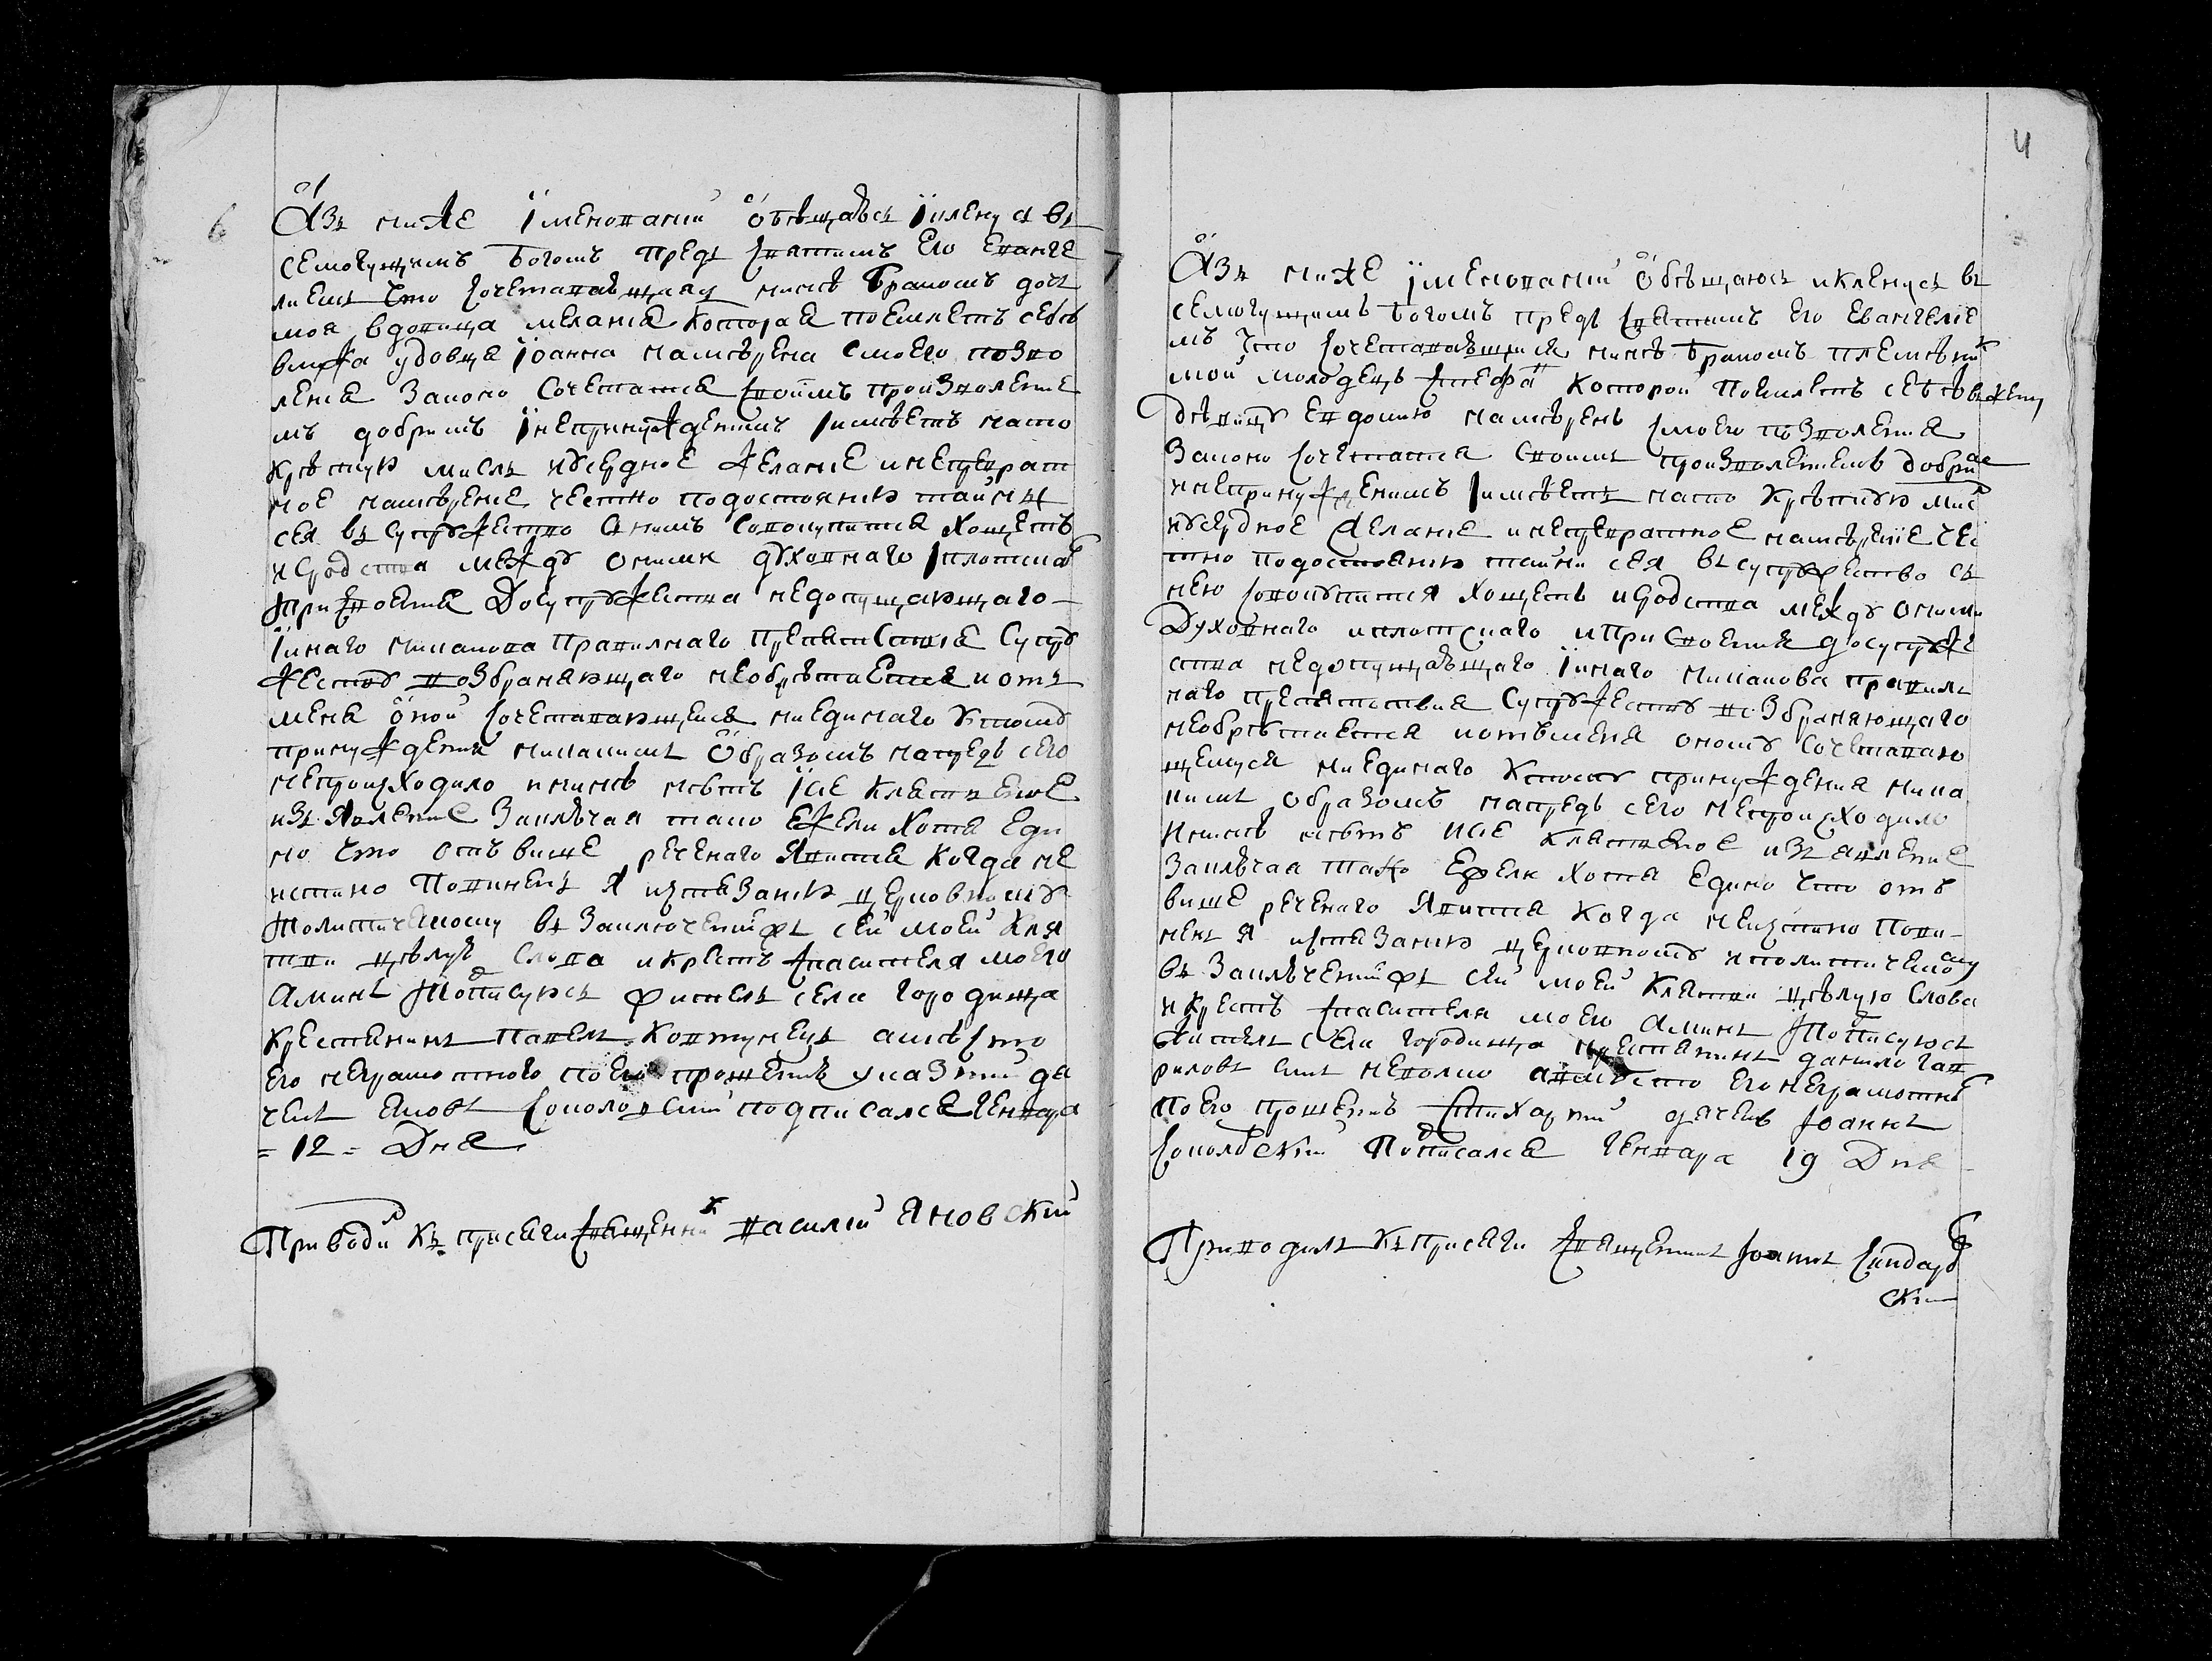 6
Азъ ниже їменований обѣщаюсь їкленуся въ
семогущимъ Богомъ предъ святимъ Его Еванге
лиемъ что сочетавающаяся нинѣ бракомъ дочь
моя вдовица мелания которая поемлетъ себѣ
вмужа удовца їоанна намѣрена смоего позво
ления законо сочетатися своимъ произволение
мъ добримъ їнепринужденнимъ їимѣетъ нато
крѣпкую мисль иусердное желание инепреврат
ное намѣрение честно подостоянию тайни
сея въ супружество снимъ совокупитися хощетъ
исродства между оними духовнаго їплотскаго
їприсвоения досупружества недопущающаго
їинаго никакова правилнаго препятствия супру
жеству возбраняющаго необрѣтается иотъ
мене оной сочетавающейся ниединаго кътому
принуждения никакимъ образомъ напредь сего
непроизходило ининѣ нѣтъ їсие клятвеное
изъявление заключая тако ежели хотя еди
но что отъ више реченаго явится когда не
истино повиненъ я изтязанию церковному
їполитическому въ заключений жъ сей моей кля
тви цѣлую слова икрестъ спасителя моего
аминь їподписуюсь жителъ села городища
крестянинъ павелъ ковтунецъ авмѣсто
его неграмотного поего прошению указний дя
чекъ яковъ соколовский подписался генваря
= 12 = дня
Приводил къ присяги священникъ василий яновский
4
7
Азъ ниже їменований обѣщаюсь икленусъ въ
семогущимъ богомъ предъ святимъ его евангелие
мъ что сочетавающийся нинѣ бракомъ племѣник
мой молодецъ стефан которой поемлетъ себѣ въжену
дѣвицу евдокию намѣренъ смоего позволения
законо сочетатися своимъ произволениемъ добрим
инепринужденимъ їимѣетъ нато крѣпкую мисль
иусердное желание инепревратное намѣрение чес
тно подостоянию тайни сея въ супружество съ
нею совокупитися хощетъ исродства между оними
духовнаго иплотскаго иприсвоения досупруже
ства недопущающаго їинаго никакова правил
наго препятствия супружеству возбраняющаго
необрѣтается иотъмене оному сочетаваю
щемуся ниединаго ктому принуждения ника
кимъ образомъ напредь сего непроизходило
ининѣ нѣтъ исие клятвеное изъявление
заключая тако ежели хотя едино что отъ
више реченаго явится когда неизтино пови
ненъ я изтязанию церковному иполитическому
въ заключений жъ сей моей клятви цѣлую слова
икрестъ спасителя моего аминь їподписуюсь
житель села городища крестянинъ данило гав
риловъ синъ авмѣсто его неграмотн
поего прошению стихарний дячекъ їоаннъ
соколовский подписался генваря 19 дня
Приводилъ къприсяги священникъ їоаннъ
ский